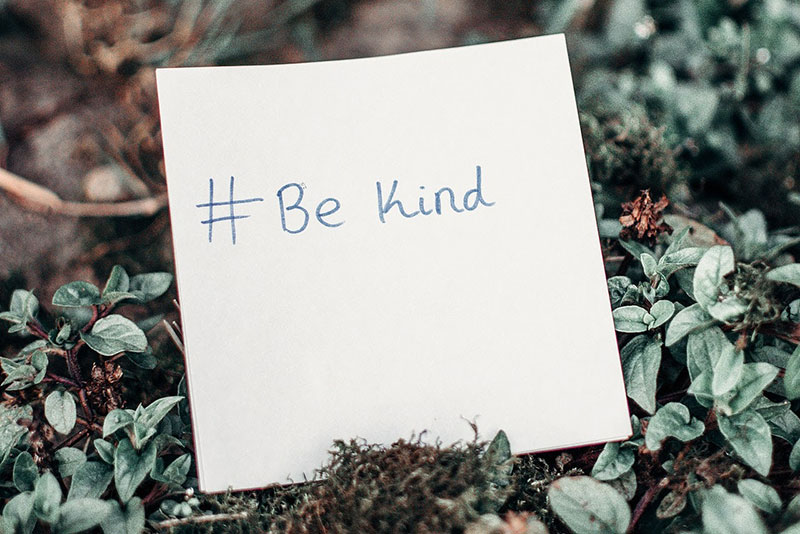 #Be Kind